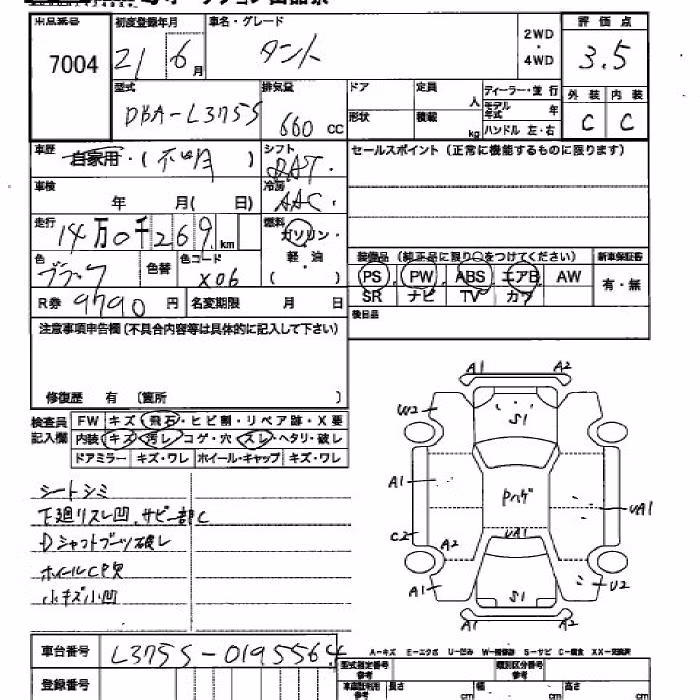 出品番号 初度登録年月 車名・グレード 評価点
7004 21 6月 タント 2WD・4WD 3.5
型式 排気量 ドア 定員 ディーラー・並行 外装 内装
DBA-L375S 660 CC 人 モデル年式 年 C C
形状 積載 kg ハンドル 左・右
車歴 自家用・(不明) シフト セールスポイント(正常に機能するものに限ります)
DAT
車検 年 月( 日) 冷房
AAC
走行 14万0千269km 燃料
ガソリン・
色 ブラック 色替 色コード X06 軽・油 装備品(純正品に限り○をつけてください) 新車保証書
( ) PS PW ABS エアB AW 有・無
R券 9790円 名変期限 月 日 SR ナビ TV カワ
注意事項申告欄(不具合内容等は具体的に記入して下さい) 後日品
修復歴 有 (箇所 )
検査員 FW キズ・飛石・ヒビ割・リペア跡・X要
記入欄 内装・キズ・汚レ・コゲ・穴・スレ・ヘタリ・破レ
ドアミラー キズ・ワレ ホイール・キャップ キズ・ワレ
シートシミ
下廻リスレ凹、サビ一部C
Dシャフトブーツ破レ
ホイールCP欠
小キズ小凹
A1 A2
U2 S1
A1 Pハゲ UA1
C2 A2 UA1
A1 S1 U2
A1 A2
車台番号 L375S-0195564
A-キズ E-エクボ U-凹み W-補修跡 S-サビ C-腐食 XX-交換済
型式指定番号 参考 類別区分番号 参考
登録番号 車庫証明用 参考 長さ cm 幅 cm 高さ cm